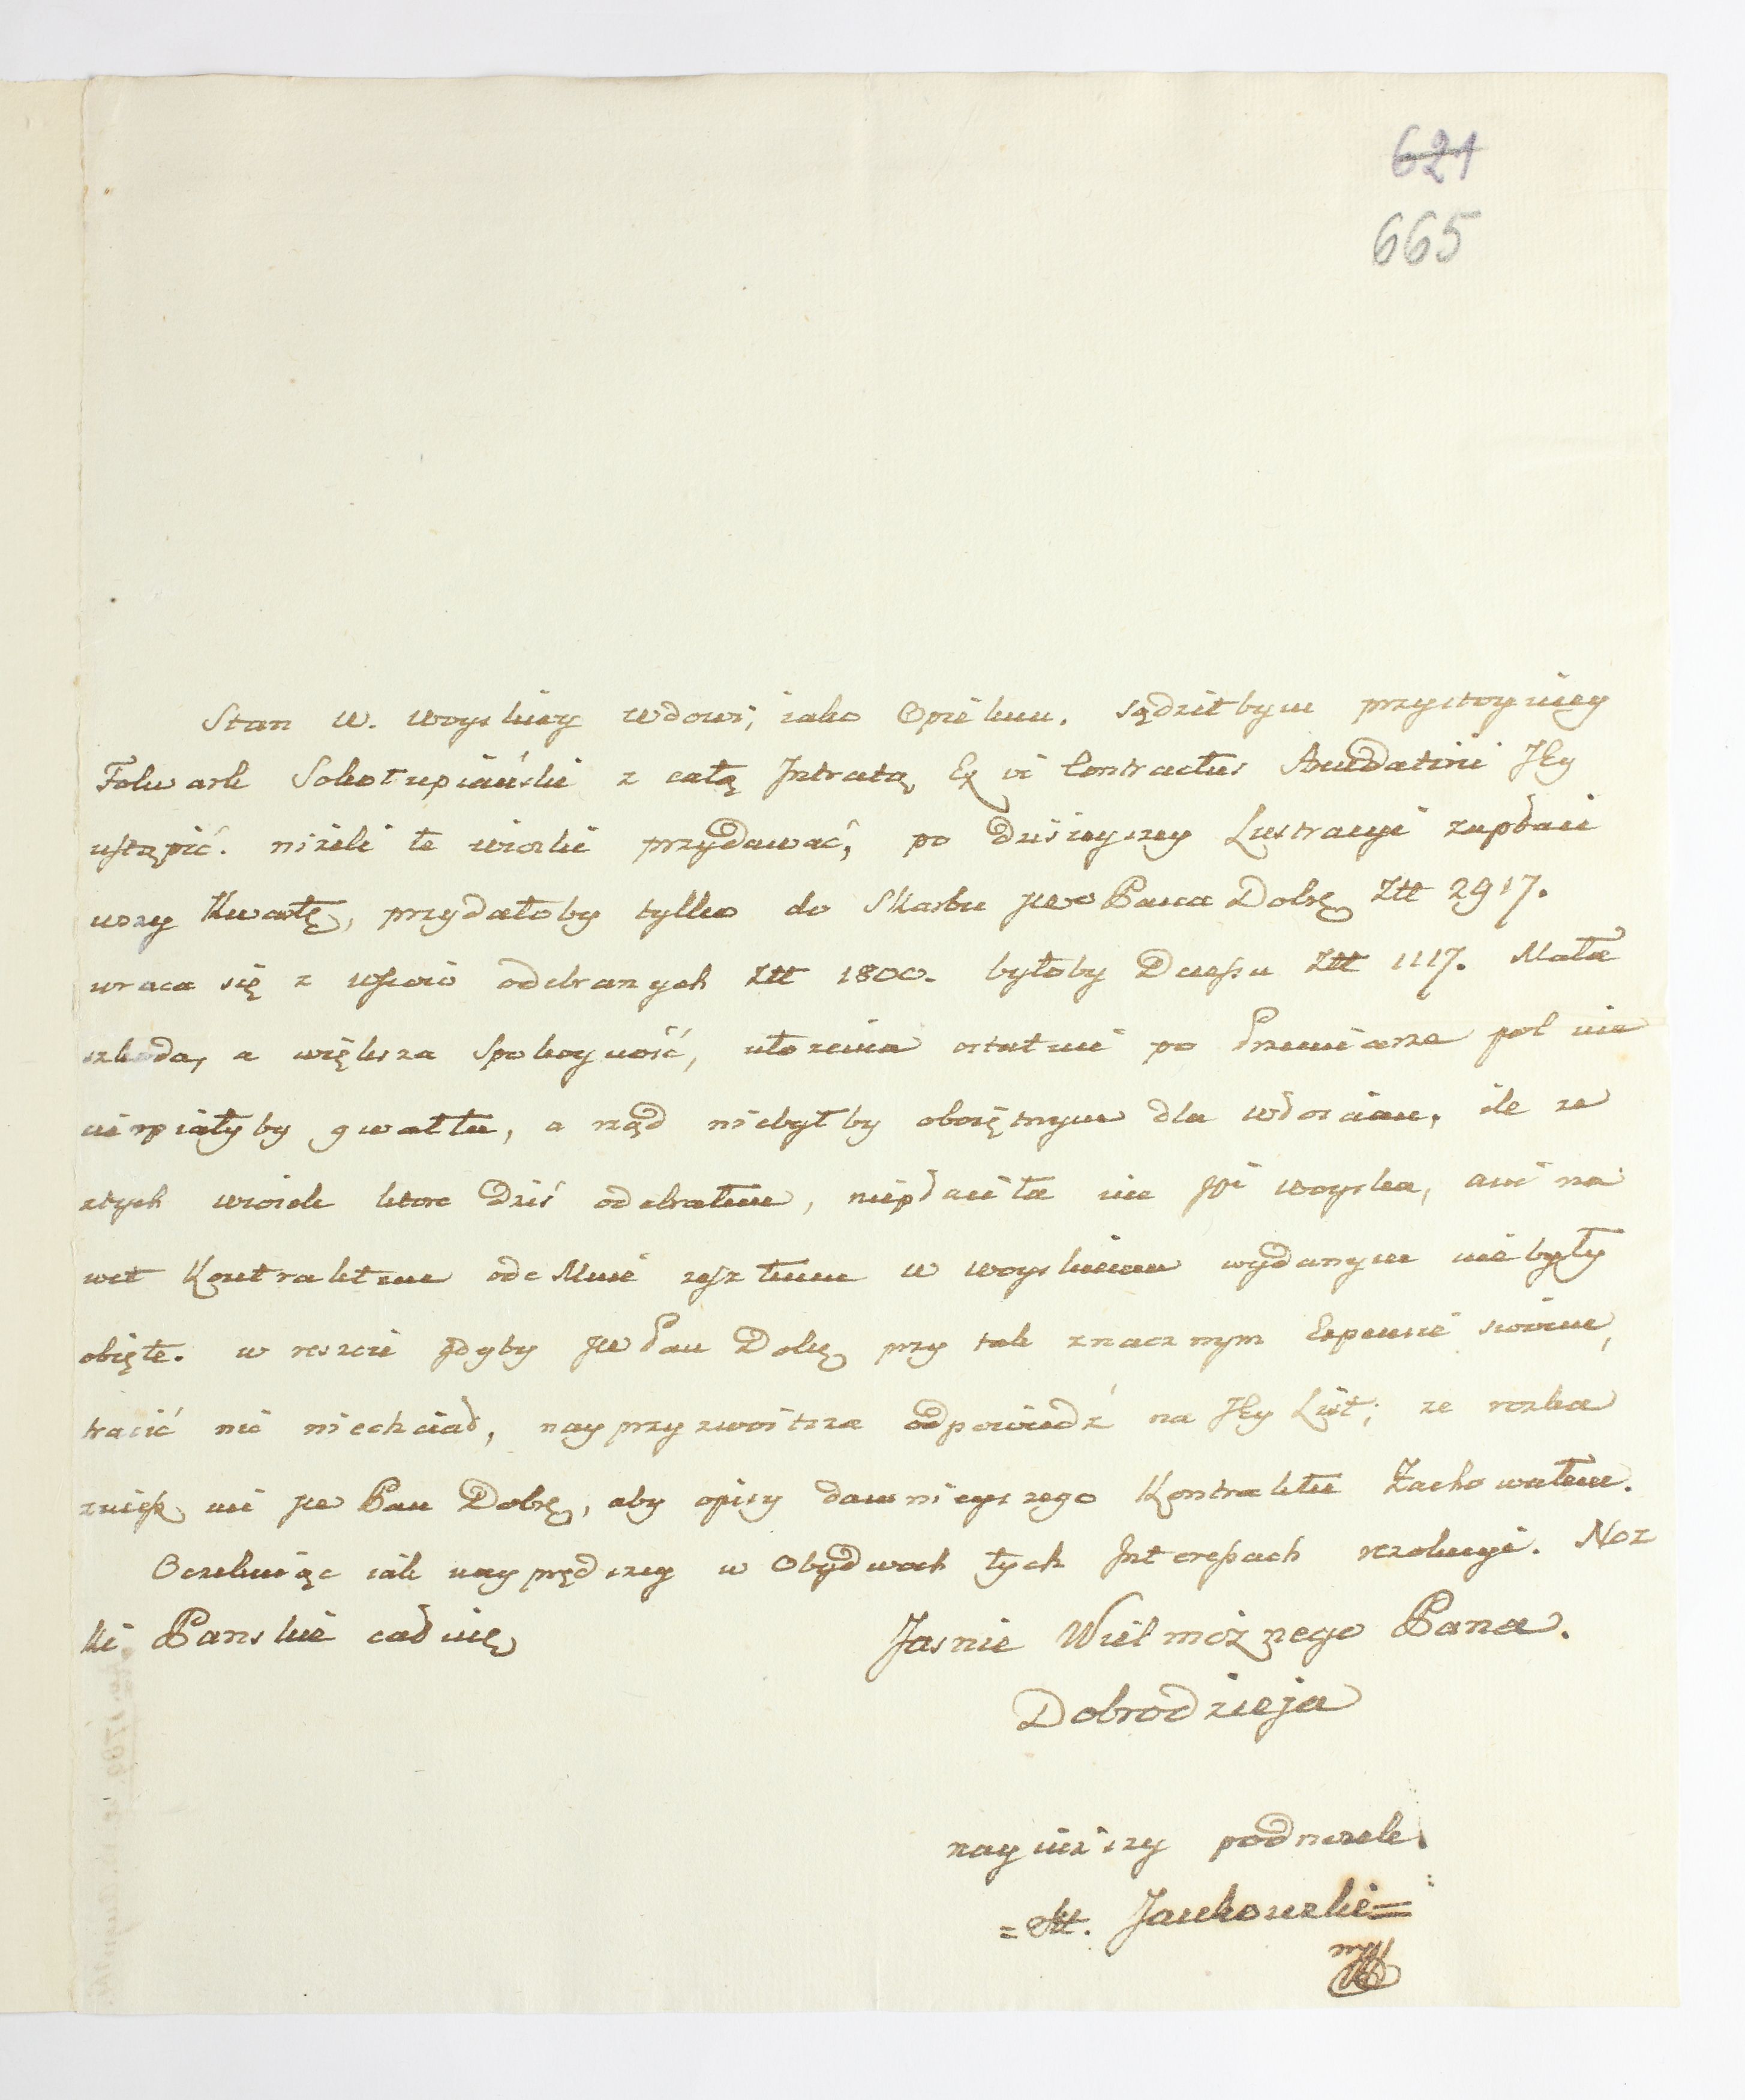 621
665
Stan w. woyskiey wdowi, iako Opiekun. sądziłbym przystoyniey
Folwark Sokołupiański z całą Jntratą Ex vi Contractus JEy
ustąpić. niżeli te wioski przydawać, po dzisieyszey Lustracyi zapłaci
wszy Kwartę, przydałoby tylko do Skarbu JW Pana Dobr Ztt 2917.
wraca się z wsiów odebranych Ztt 1800. byłoby Ztt 1117. Mała
szkoda, a większa spokoyność, ułożenia ostatnie po Przemiarze pol nie
cierpiałyby gwałtu, a rząd niebyłby oboiętnym dla włoscian, ile ze
ztych wiosek ktore Dziś odebrałem, niepłaciła nic JPi woyska, ani na
wet Kontraktem ode Mnie zeszłemu w woyskiemu wydanym nie były
obięte. w reszcie gdyby JW Pan Dobr przy tak znacznym Expensie swoim,
tracić nic niechciał, nayprzyzwoitsza odpowiedź na JEy List; ze rozka
zuiesz mi JW Pan Dobr, aby opisy dawnieyszego Kontraktu Zachowałem.
Oczekuiąc iak nayprędszey w Obydwoch tych Jnteressach rezolucyi. Noz
ki Panskie całuię Jasnie Wielmożnego Pana.
Dobrodzieja
nayniższy podnozek
= Jankowski =
mpp